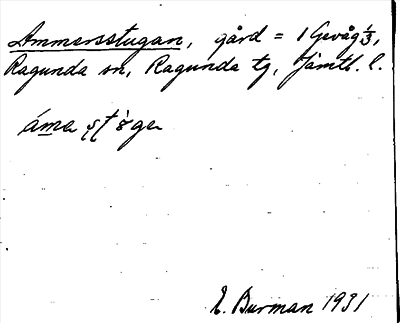 Ammersstugan, gård = 1 Gevåg 1/3,
Ragunda sn, Ragunda tg, Jämtl. l.
E. Burman 1931